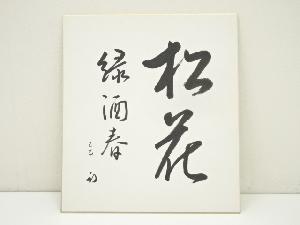 松花
緑酒春